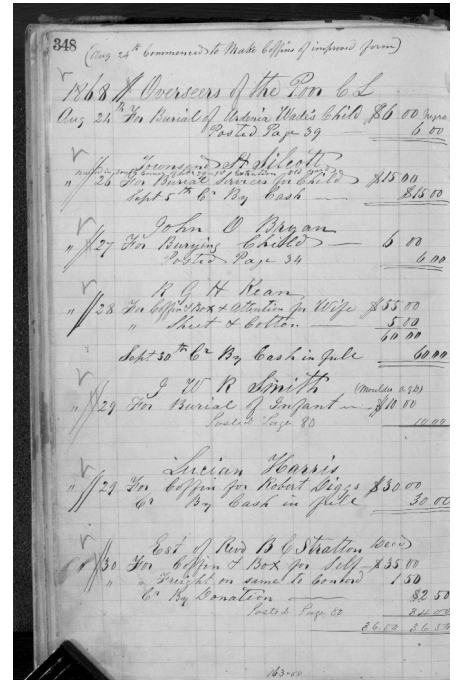 348
(Aug 24th Commenced to Make Coffins of improved form)
1868 Overseers of the Poor C L
Aug 24th For Burial of Child $6 00 Negro
Posted Page 39 — 6 00
Townsend H Silcott
" 26 For Burial Services for Child $15 00
Sept 5th Cr By Cash — $15 00
John O Bryan
" 27 For Burying Child — 6 00
Posted Page 34 6 00
R G H Kean
" 28 For Coffin & Box & Attention for Wife $55 00
" Sheet & Cotton — 5 00
60 00
Sept 30th Cr By Cash in full 60 00
J W R Smith (Moulder
" 29 For Burial of Infant — $10 00
Posted Page 80 10 00
Lucian Harris
" 29 For Coffin for Robert Diggs $30 00
Cr By Cash in full 30 00
Est of Revd B C Stratton Decd
" 30 For Coffin & Box for Self — $35 00
" Freight on same to 1 50
Cr By Donation — $2 50
Posted Page 80 34 00
36 50 36 50
163 00